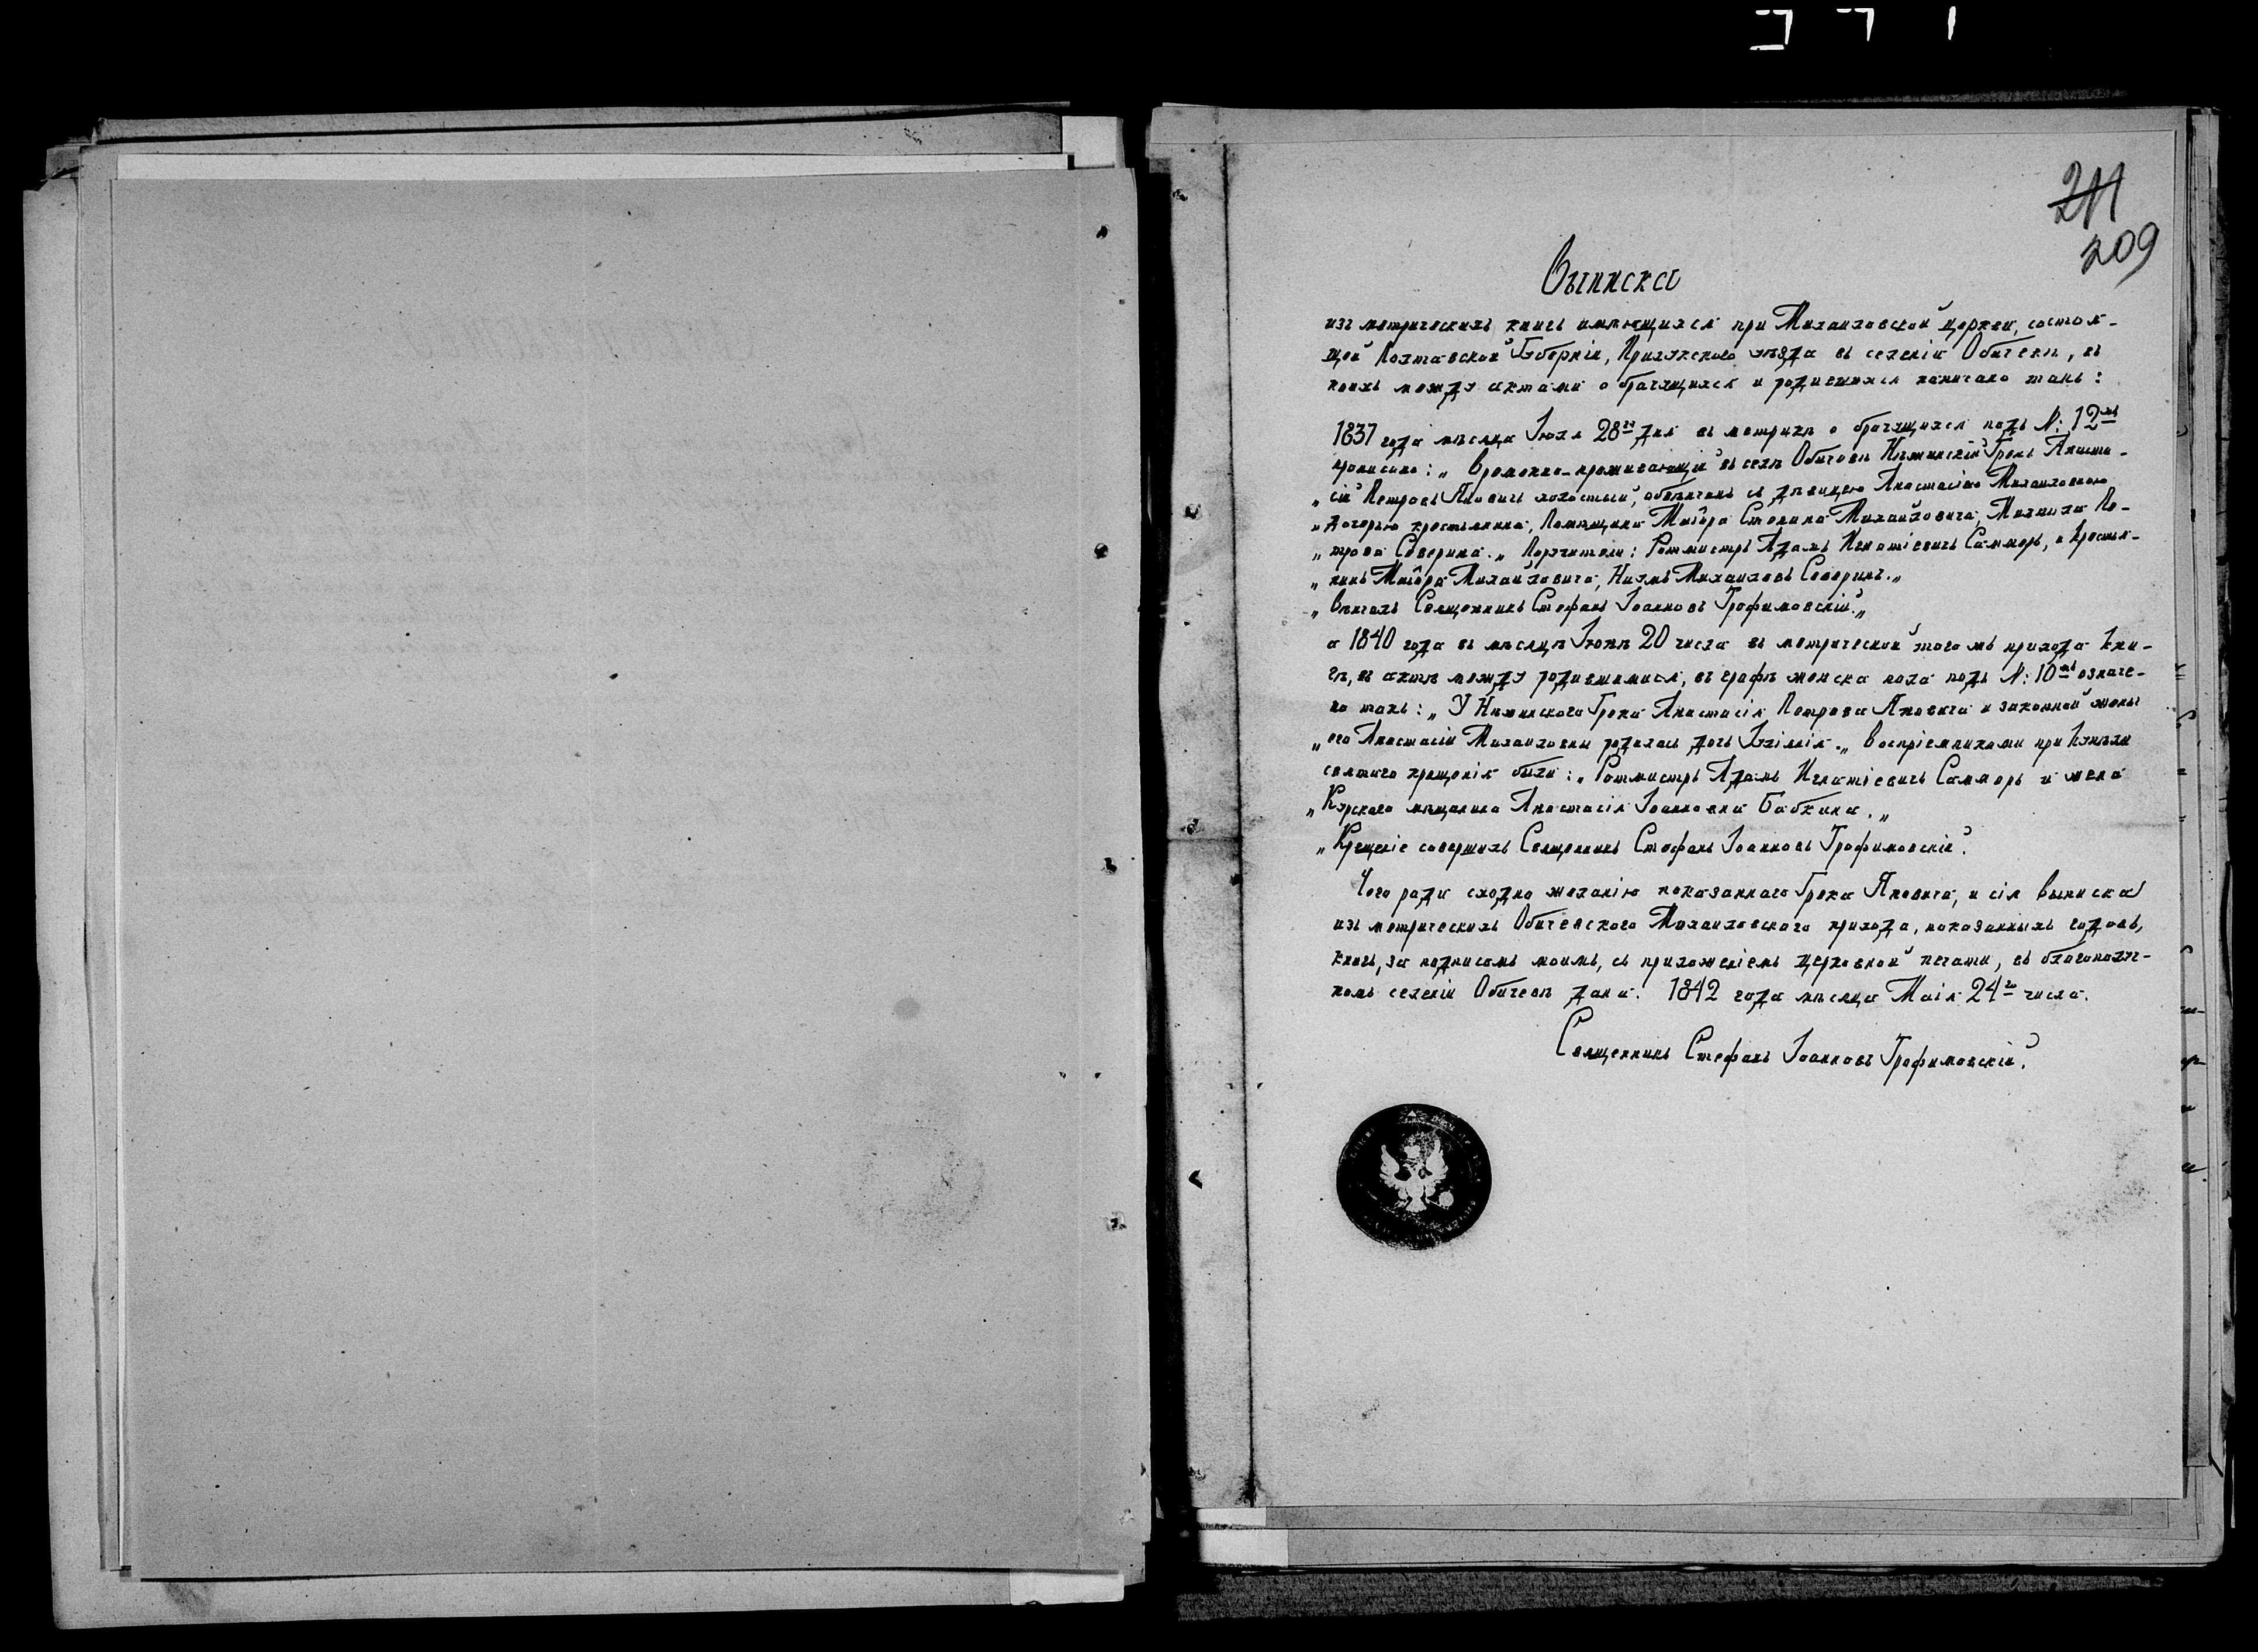 211
209
Выписка
изъ метрическихъ книгъ имѣющихся при Михаиловской церкви, состоя-
щей Полтавской Губерніи, Прилукского уѣзда въ селеніи Обичевѣ, въ
коихъ между актами о брачущихся и родившихся написано такъ:
1837 года мѣсяца Іюля 28го дня въ метрикѣ о брачущихся подъ №: 12мъ
прописано: „Временно-проживающій въ селѣ Обичевѣ Нѣжинскій Грекъ Анаста-
„сій Петровъ Яновичъ холостый, обвѣнчанъ съ дѣвицею Анастасіею Михаиловною
„дочерью крестьянина, Помѣщика Маіора Степана Михайловича, Михаила Пе-
„трова Северина.„ Поручители: Ротмистръ Адамъ Игнатіевичъ Саммеръ, и крестья-
„нинъ Маіора Михайловича, Наумъ Михаиловъ Северинъ.„
„Вѣнчалъ Священникъ Стефанъ Іоанновъ Трофимовскій.„
а 1840 года въ мѣсяцѣ Іюнѣ 20 числа въ метрической того жъ прихода кни-
гѣ, въ актѣ между родившимися, въ графѣ женска пола подъ №: 10мъ означе-
но такъ: „У Нѣжинского Грека Анастасія Петрова Яновича и законной жены
„его Анастасіи Михаиловны родилась дочь Іуліанія.„ Воспріемниками при купѣли
святаго крещенія были: „Ротмистръ Адамъ Игнатіевичъ Саммеръ и жена
„Курскаго мѣщанина Анастасія Іоанновна Бабкина.„
„Крещеніе совершилъ Священникъ Стефанъ Іоанновъ Трофимовскій.
Чего ради сходно желанію показаннаго Грека Яновича, и сія выписка
изъ метрическихъ Обичевского Михаиловскаго прихода, показанныхъ годовъ,
книгъ, за подписомъ моимъ, съ приложеніемъ церковной печати, въ благополуч-
номъ селеніи Обичевѣ дана. 1842 года мѣсяца Маія 24го числа.
Священникъ Стефанъ Іоанновъ Трофимовскій.